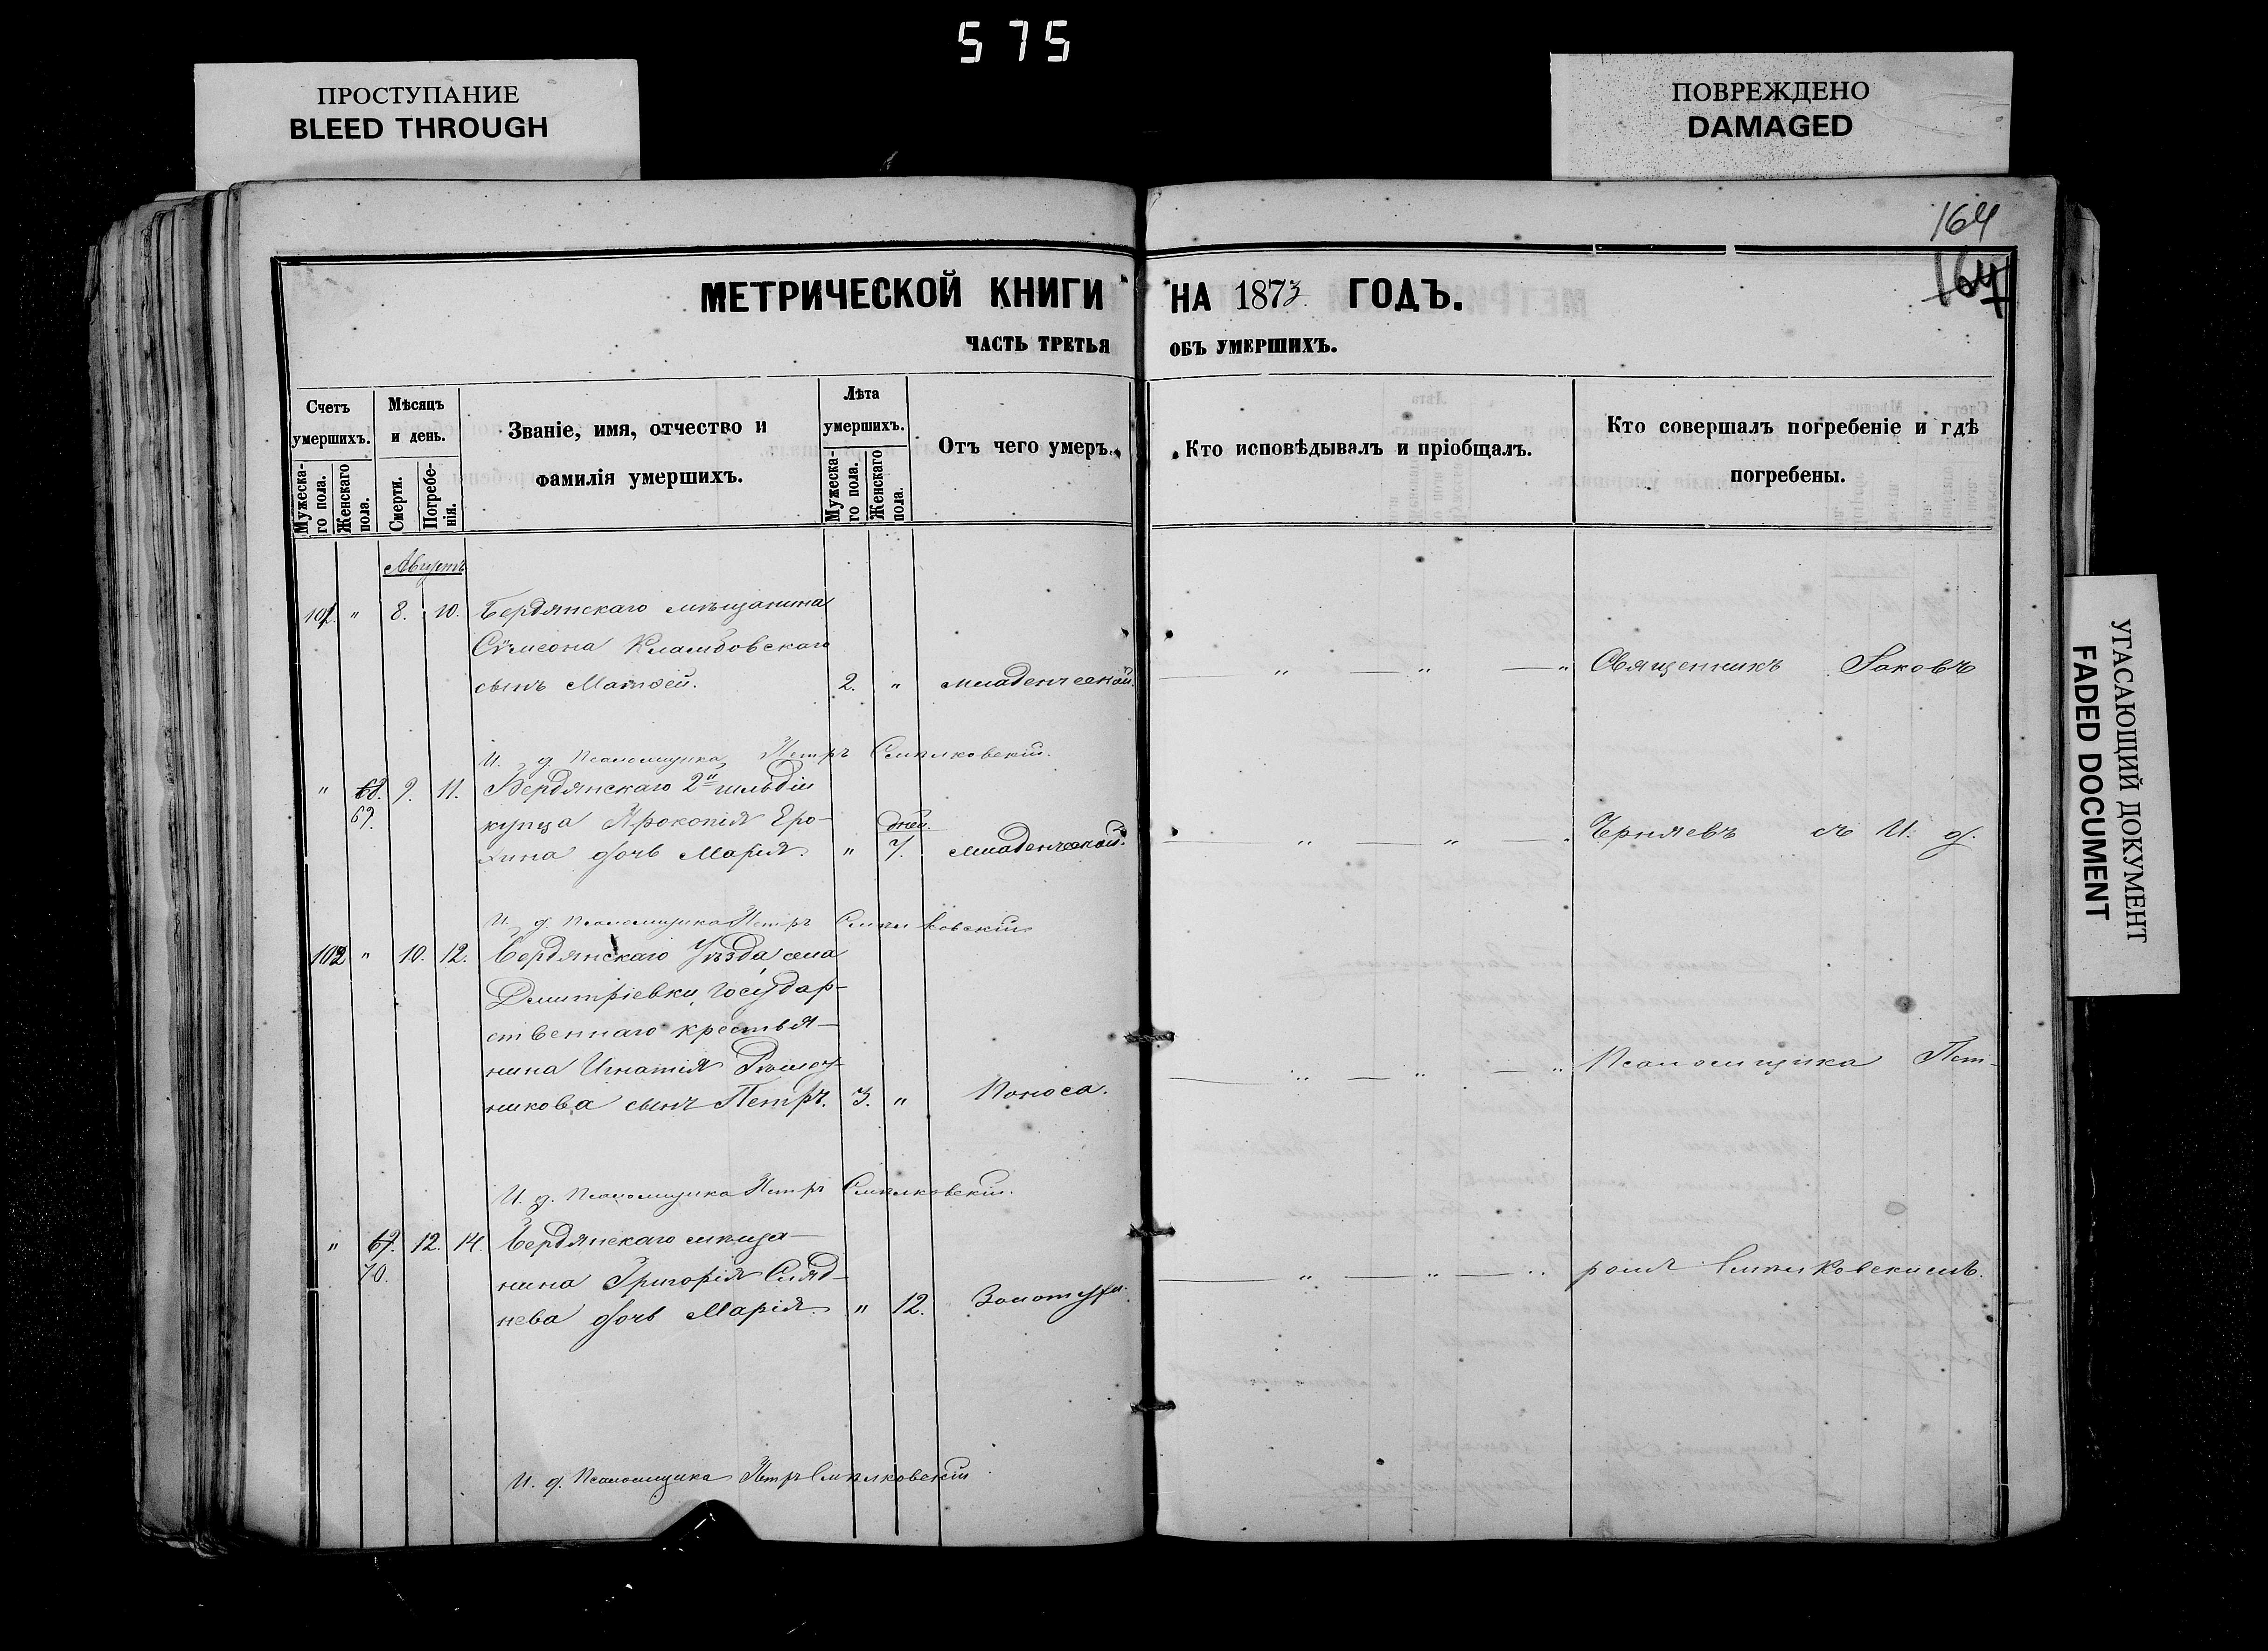 575
ПРОСТУПАНИЕ
BLEED THROUGH
ПОВРЕЖДЕНО
DAMAGED
УГАСАЮЩИЙ ДОКУМЕНТ
FADED DOCUMENT
164
164
МЕТРИЧЕСКОЙ КНИГИ НА 1873 ГОДЪ.
ЧАСТЬ ТРЕТЬЯ ОБЪ УМЕРШИХЪ.
Счетъ умершихъ.
Мужеска-го пола.
Женскаго пола.
Мѣсяцъ и день.
Смерти.
Погребе-нія.
Званіе, имя, отчество и
фамилія умершихъ.
Лѣта умершихъ.
Мужеска-го пола.
Женскаго пола.
Отъ чего умеръ.
Кто исповѣдывалъ и пріобщалъ.
Кто совершалъ погребеніе и гдѣ
погребены.
Августъ
101. " 8. 10. Бердянскаго мѣщанина
Сѵмеона
сынъ Матѳей. 2. " младенческой.
" " Священникъ Іаковъ
И. д. Псаломщика Петръ Смѣлковскій.
" 68. 9. 11. Бердянскаго 2й гильдіи
69. купца Прокопія Еро-
хина дочь Марія. " дней. 7. Младенческой.
" " Черняевъ съ И. д.
И. д. Псаломщика Петръ Смѣлковскій
102 " 10. 12. Бердянскаго Уѣзда села
Дмитріевки, Государ-
ственнаго крестья-
нина Игнатія
никова сынъ Петръ. 3. " Поноса.
" " " Псаломщика Пет-
И. д. Псаломщика Петръ Смѣлковскій.
" 69. 12. 14. Бердянскаго мѣща-
70. нина Григорія Сляд-
нева дочь Марія. " 12. Золотухи.
" " " ромъ Смѣлковскимъ.
И. д. Псаломщика Петръ Смѣлковскій